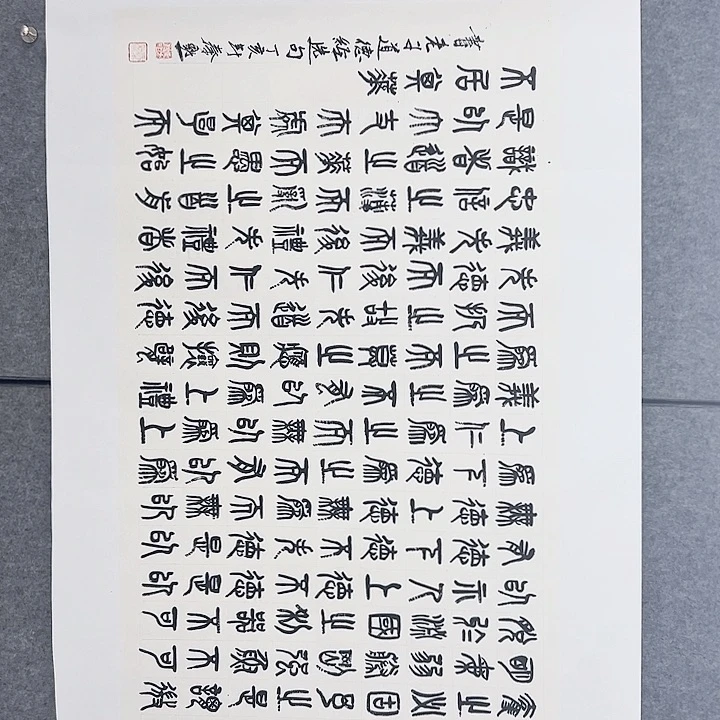 奪之必固與之是謂微
明柔弱勝剛強魚不可
脫於淵國之利器不可
以示人上德不德是以
有德下德不失德是以
無德上德無為而無以
為下德為之而有以為
上仁為之而無以為上
義為之而有以為上禮
為之而莫之應則攘臂
而扔之故失道而後德
失德而後仁失仁而後
義失義而後禮夫禮者
忠信之薄而亂之首前
識者道之華而愚之始
是以大丈夫處其厚而
不居其華
書老子道德經選句丁亥